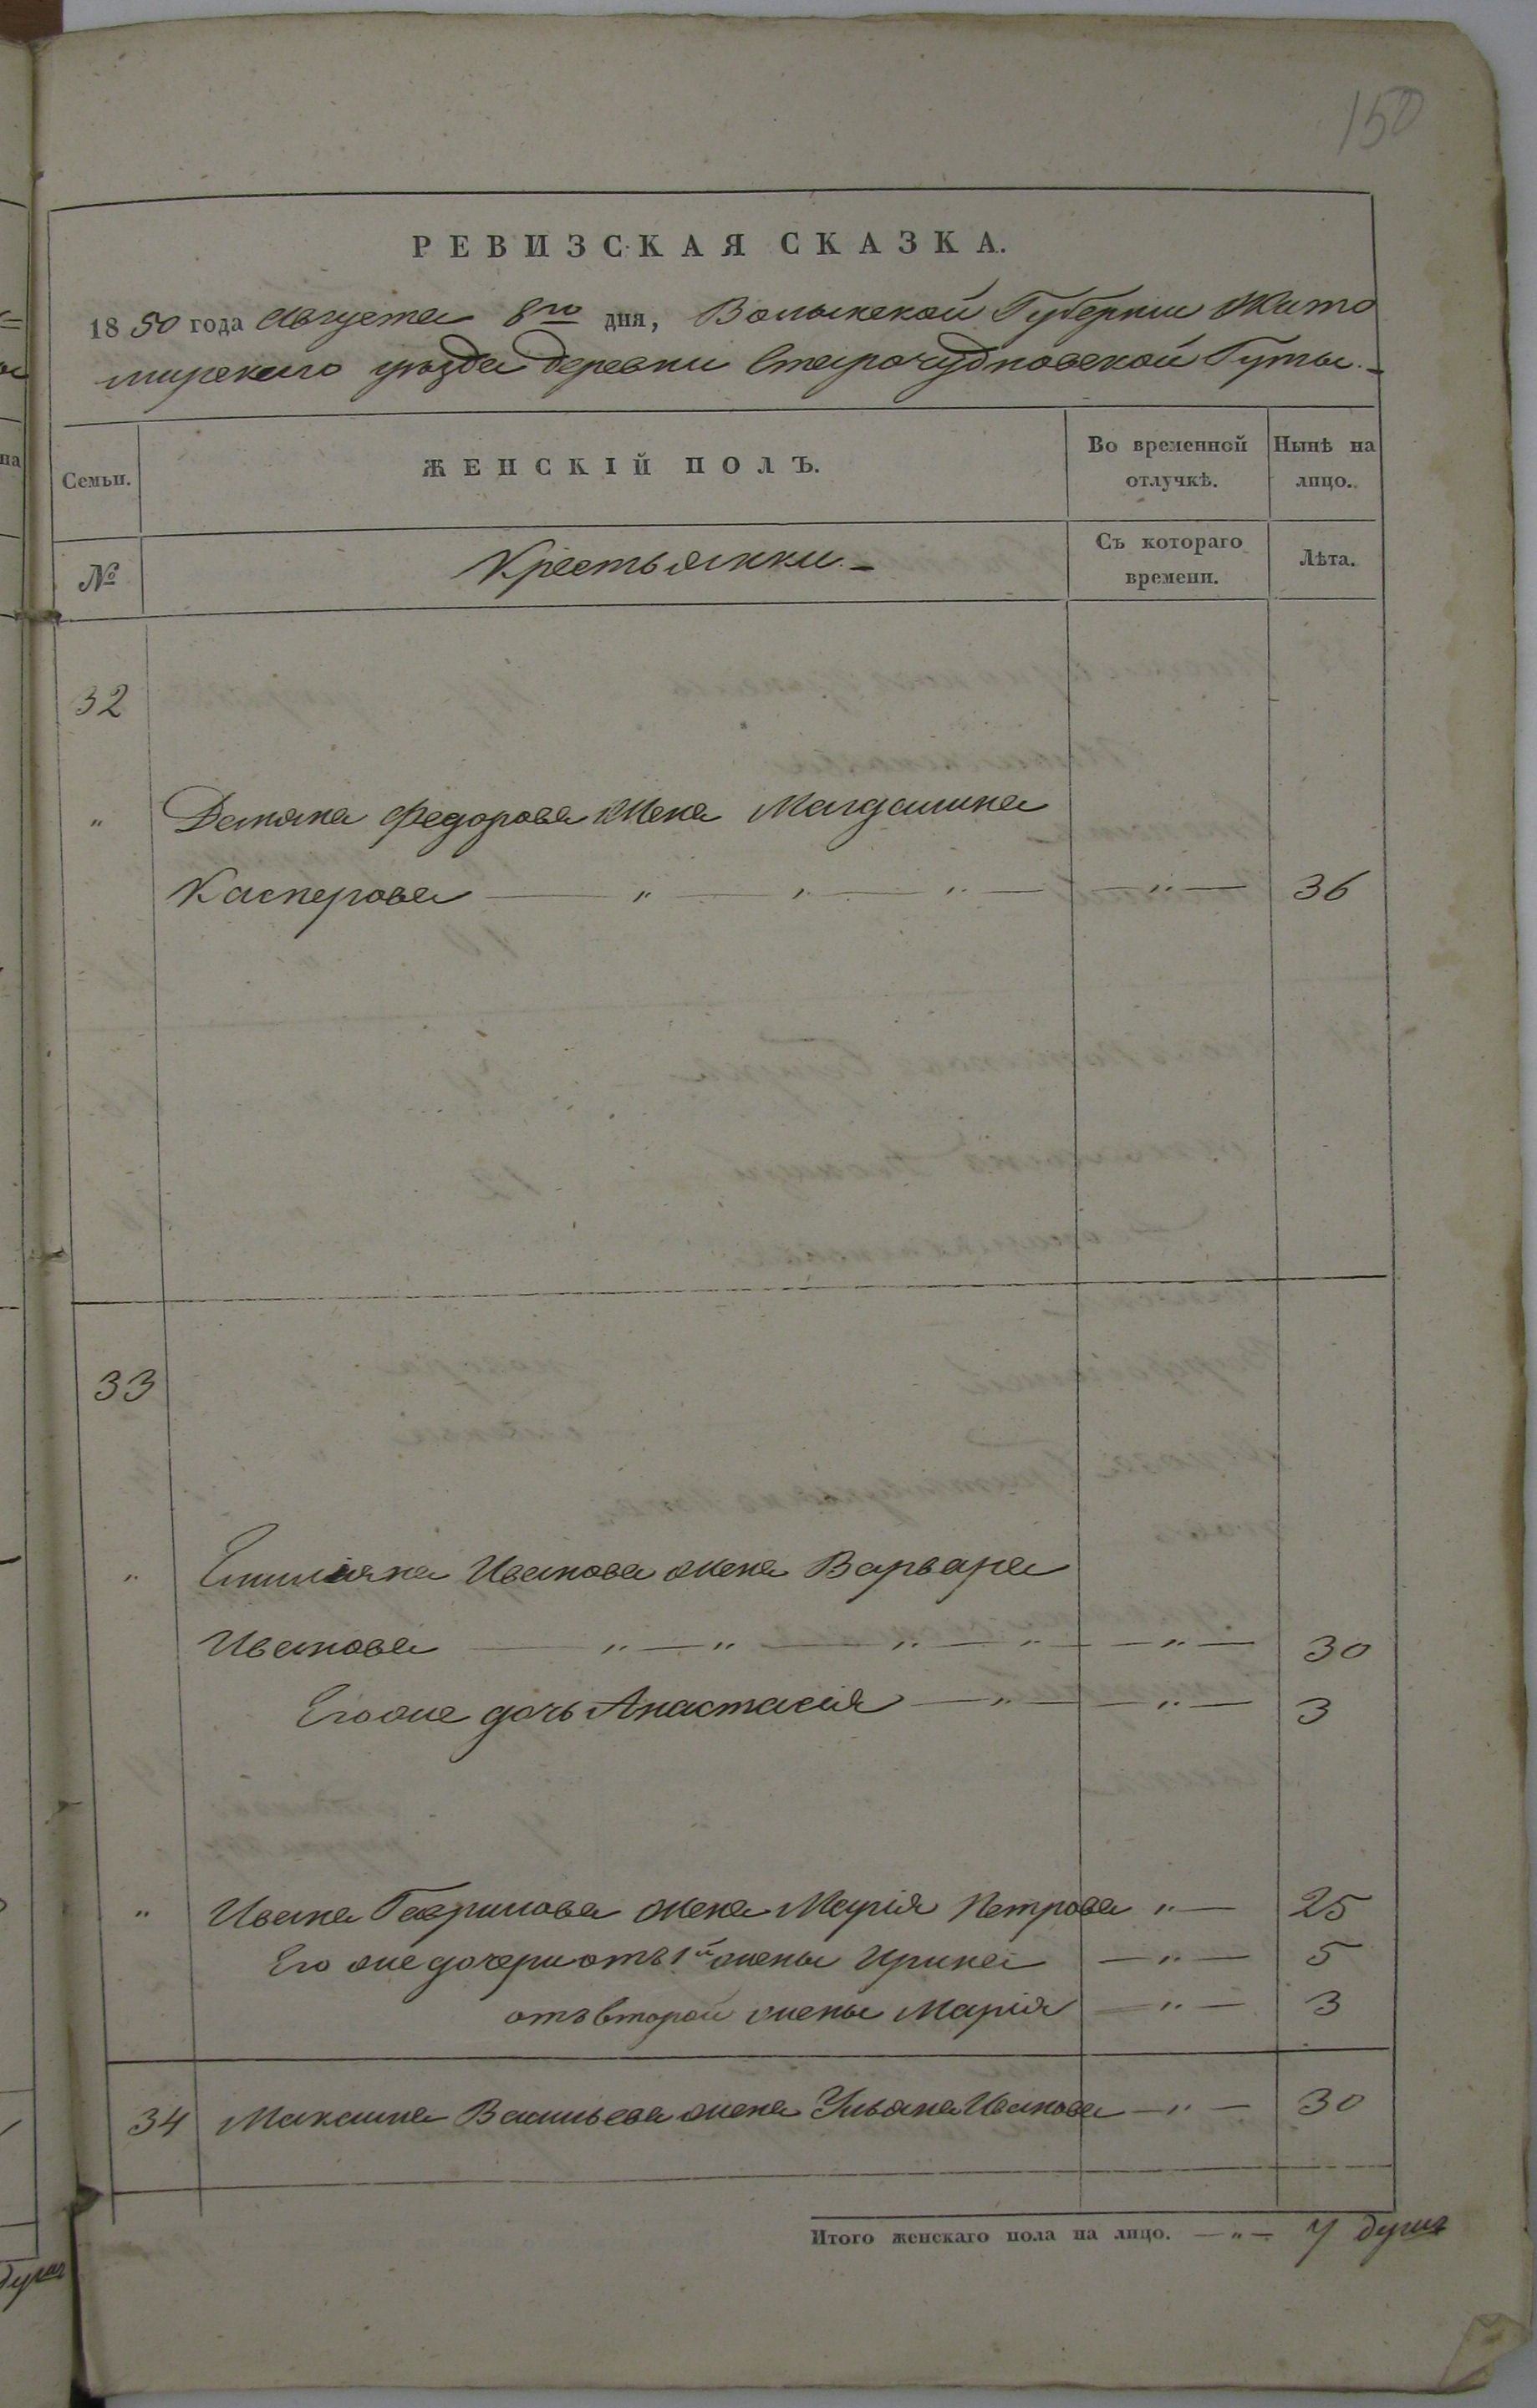 150
РЕВИЗСКАЯ СКАЗКА.
1850 года Августа 8го дня, Волынской Губернии Жито
мирского уезда деревни Старочудновской Гуты.-
Семьи.
ЖЕНСКІЙ ПОЛЪ.
Во временной отлучкѣ.
Нынѣ на лицо.
№
Крестьянки.-
Съ котораго времени.
Лѣта.
32
" Демяна Федорова жена Магдалина
Касперова — " — " — " — — " — 36
33
" Емилияна Иванова жена Варвара
Иванова — " — " — " — " — — " — 30
Его же дочь Анастасія — " — — " — 3
" Ивана Гаврилова жена Марія Петрова " — 25
Его же дочери отъ 1й жены Ирина — " — 5
отъ второй жены Марія — " — 3
34 Максима Васильева жена Ульяна Иванова — " — 30
Итого женскаго пола на лицо. — " — 7 душъ
душъ